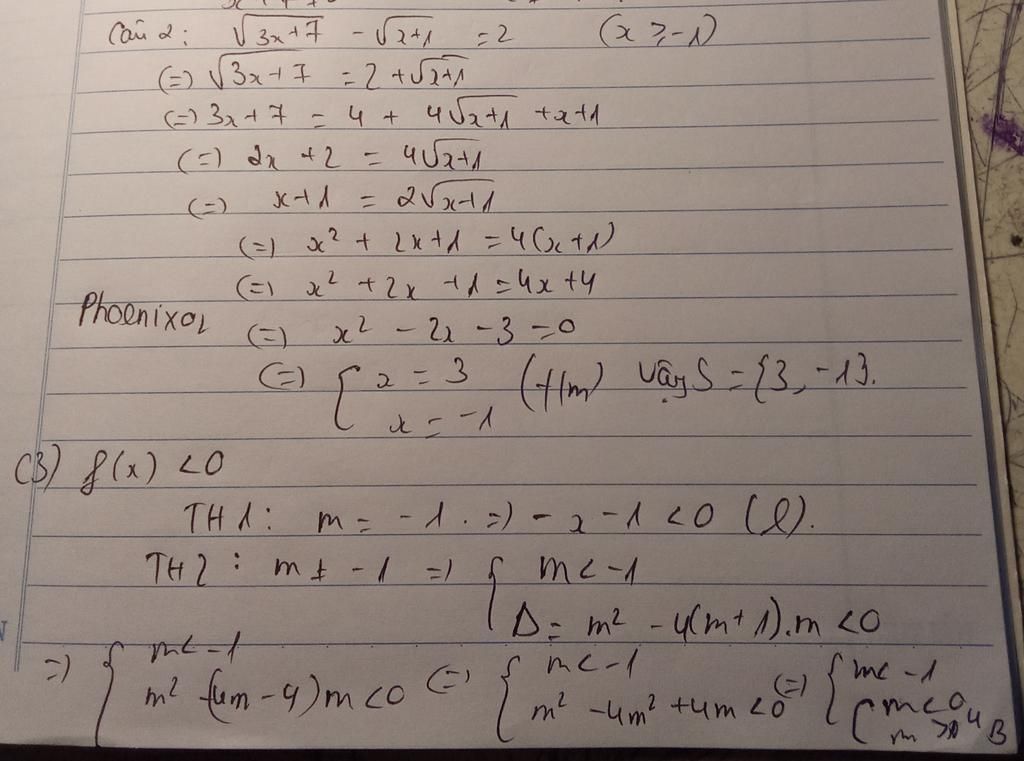 Câu 2: √(3x+7) - √(x+1) = 2 (x ≥ -1)
(=) √(3x+7) = 2 + √(x+1)
(=) 3x+7 = 4 + 4√(x+1) + x+1
(=) 2x + 2 = 4√(x+1)
(=) x+1 = 2√(x+1)
(=) x² + 2x+1 = 4(x+1)
(=) x² + 2x +1 = 4x+4
Phoenixo2
(=) x² - 2x - 3 = 0
(=) { x = 3 (t/m) Vậy S = {3, -1}.
x = -1
C3) f(x) < 0
TH1: m = -1. =) -x-1 < 0 (l).
TH2: m ≠ -1 =) { m < -1
Δ = m² - 4(m+1).m < 0
=) { m < -1 (=) { m < -1 (=) { m < -1
m² -(4m-4)m < 0 m² - 4m² + 4m < 0 [ m < 0